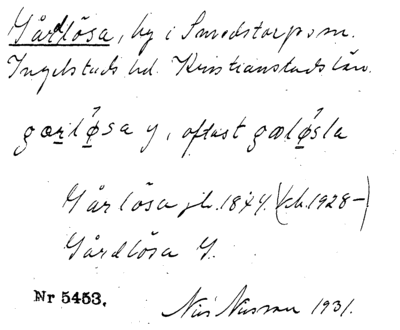 Gårdlösa, by i Smedstorps sn.
Ingelstads hd. Kristianstads län.
gœrlø̂sa y, oftast gœlø̂sla
Gårlösa jb. 1844. (kb. 1928–)
Gårdlösa
Nr 5453.
Nils 1931.